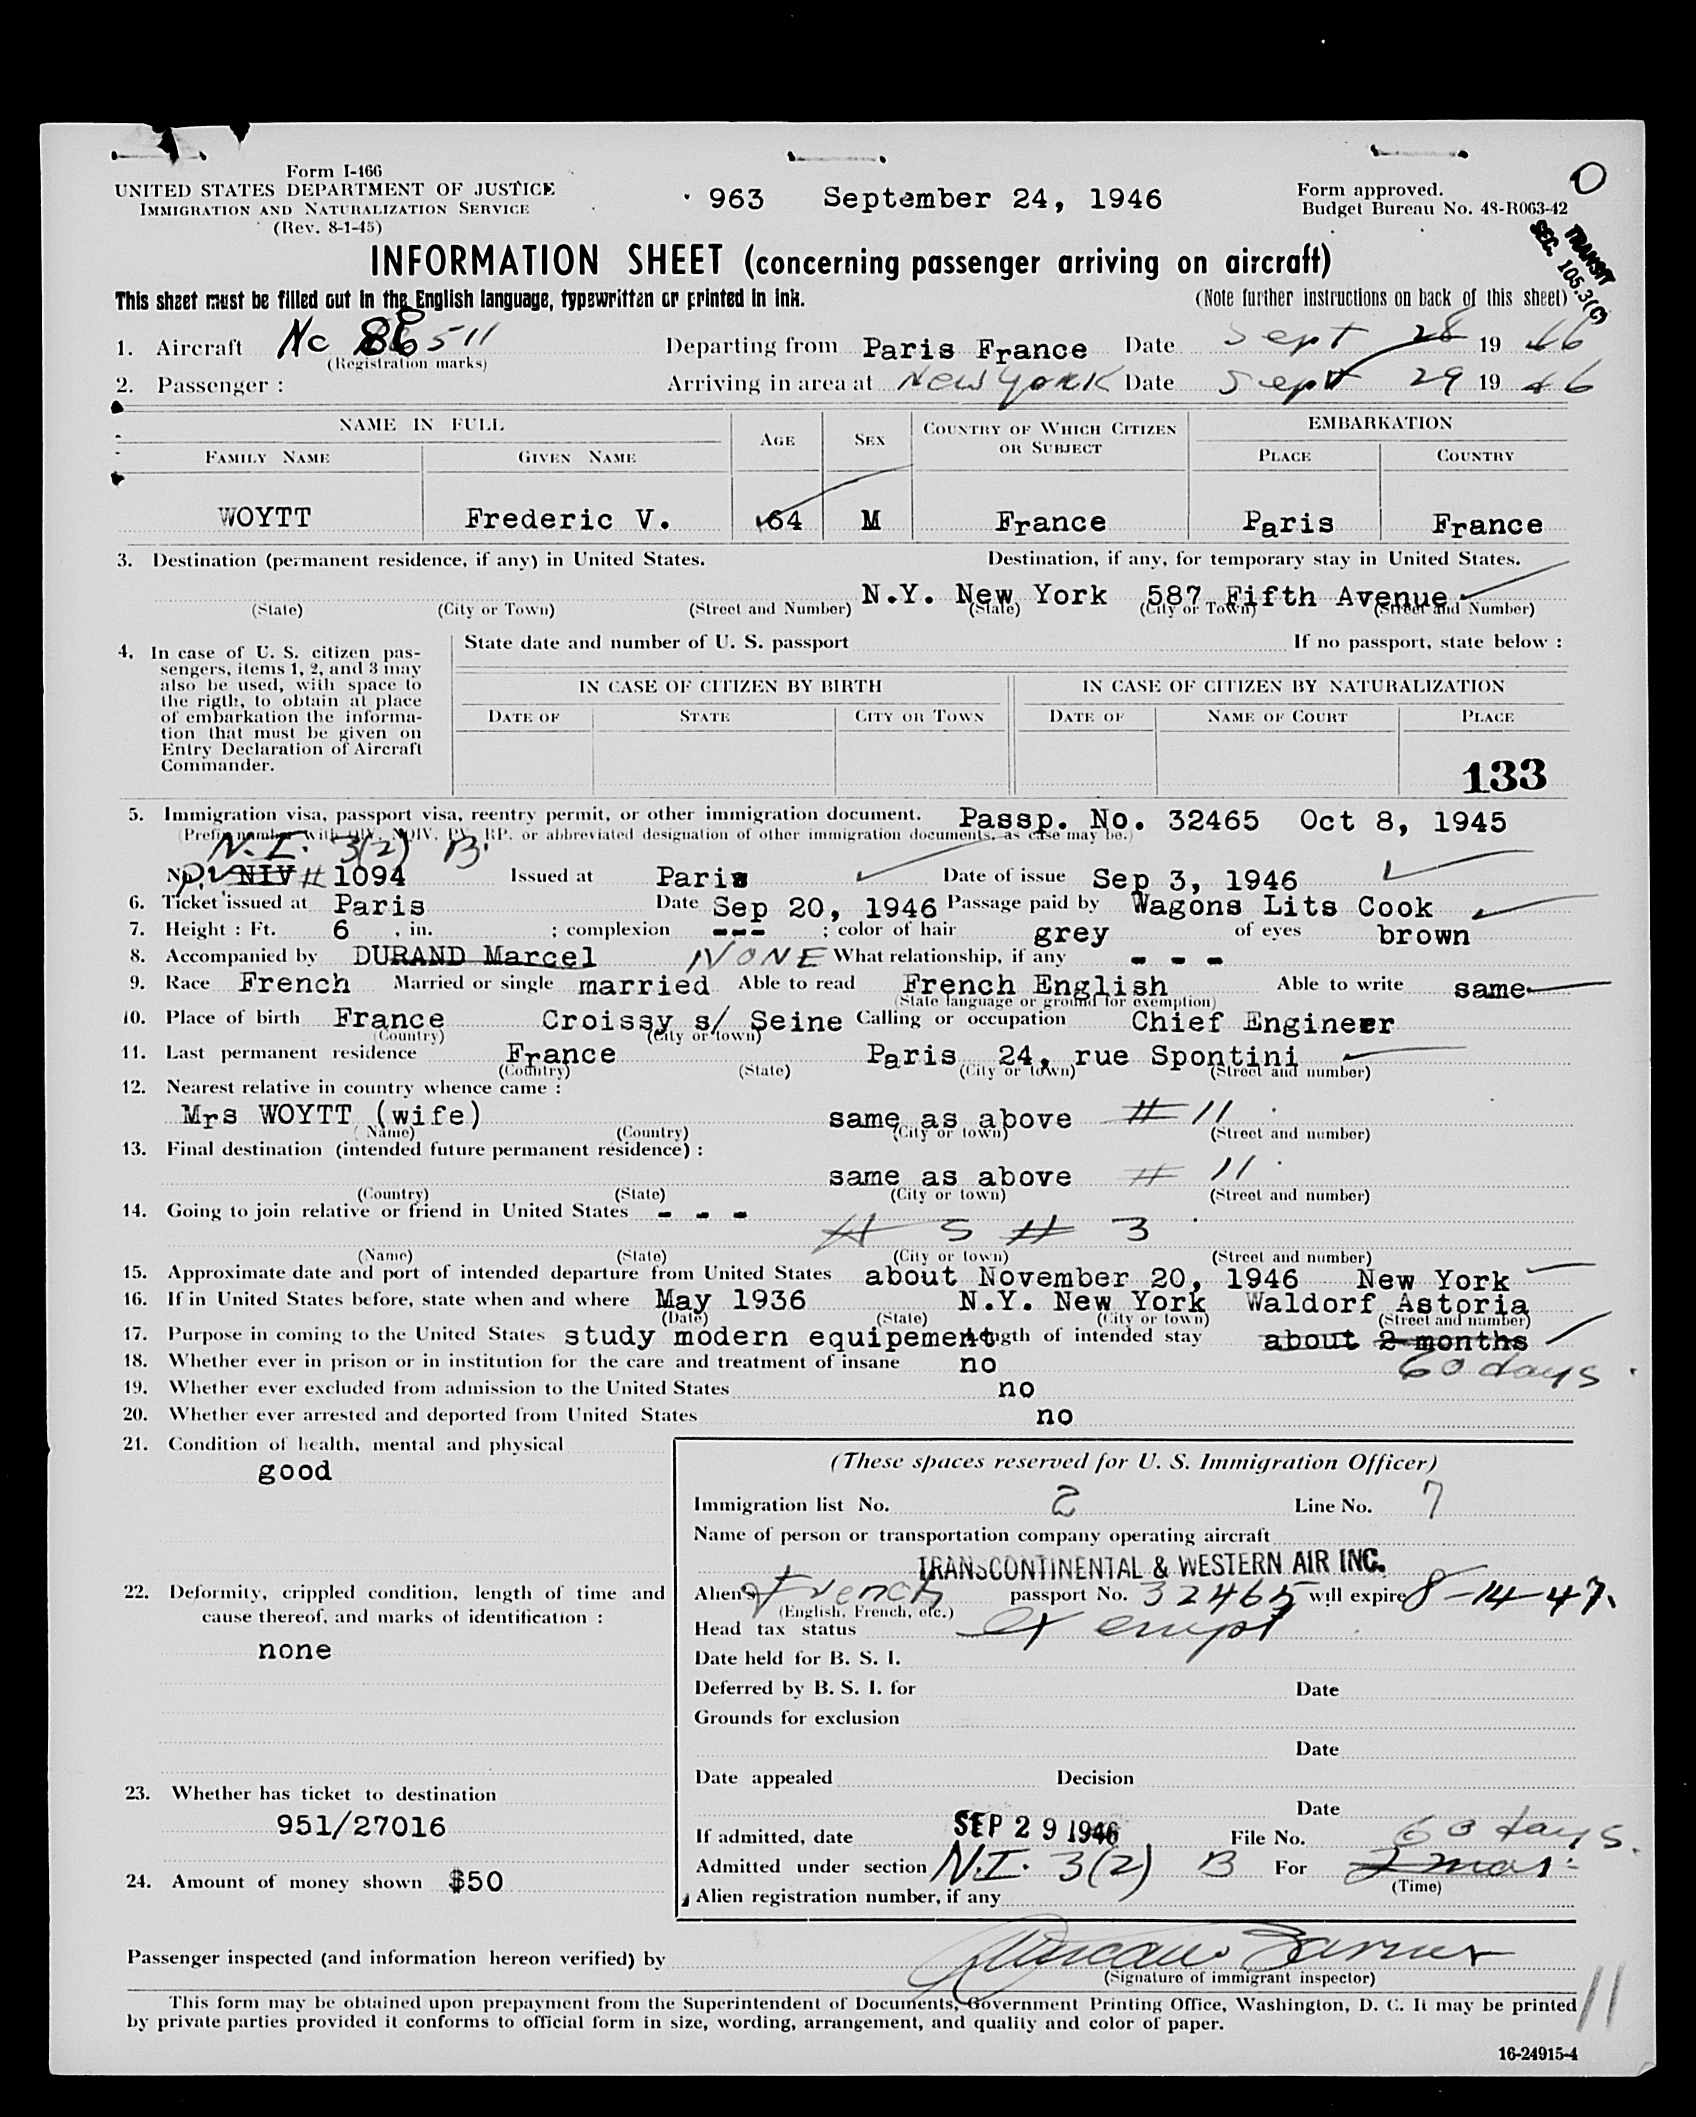 Form I-466
UNITED STATES DEPARTMENT OF JUSTICE
IMMIGRATION AND NATURALIZATION SERVICE
(Rev. 8-1-45)
963 September 24, 1946
Form approved.
Budget Bureau No. 43-R063-42
O
TRANSIT
SEC. 105.3(C)
INFORMATION SHEET (concerning passenger arriving on aircraft)
This sheet must be filled out in the English language, typewritten or printed in ink.
(Note further instructions on back of this sheet)
1. Aircraft Nc 86511 Departing from Paris France Date Sept 28 19 46
(Registration marks)
2. Passenger : Arriving in area at New York Date Sept 29 19 46
NAME IN FULL AGE SEX COUNTRY OF WHICH CITIZEN OR SUBJECT EMBARKATION
FAMILY NAME GIVEN NAME PLACE COUNTRY
WOYTT Frederic V. 64 M France Paris France
3. Destination (permanent residence, if any) in United States. Destination, if any, for temporary stay in United States.
N.Y. New York 587 Fifth Avenue
(State) (City or Town) (Street and Number) (State) (City or Town) (Street and Number)
4. In case of U. S. citizen pas-
sengers, items 1, 2, and 3 may
also be used, with space to
the rigth, to obtain at place
of embarkation the informa-
tion that must be given on
Entry Declaration of Aircraft
Commander.
State date and number of U. S. passport If no passport, state below :
IN CASE OF CITIZEN BY BIRTH IN CASE OF CITIZEN BY NATURALIZATION
DATE OF STATE CITY OR TOWN DATE OF NAME OF COURT PLACE
133
5. Immigration visa, passport visa, reentry permit, or other immigration document. Passp. No. 32465 Oct 8, 1945
(Prefix number with QIV, NQIV, PV, RP, or abbreviated designation of other immigration documents, as case may be.)
N.I. 3(2) B.
No. PV NIV # 1094 Issued at Paris Date of issue Sep 3, 1946
6. Ticket issued at Paris Date Sep 20, 1946 Passage paid by Wagons Lits Cook
7. Height : Ft. 6 . in. ; complexion --- ; color of hair grey of eyes brown
8. Accompanied by DURAND Marcel NONE What relationship, if any - - -
9. Race French Married or single married Able to read French English Able to write same
(State language or ground for exemption)
10. Place of birth France Croissy s/ Seine Calling or occupation Chief Engineer
(Country) (City or town)
11. Last permanent residence France Paris 24, rue Spontini
(Country) (State) (City or town) (Street and number)
12. Nearest relative in country whence came :
Mrs WOYTT (wife) same as above # 11
(Name) (Country) (City or town) (Street and number)
13. Final destination (intended future permanent residence) :
same as above # 11
(Country) (State) (City or town) (Street and number)
14. Going to join relative or friend in United States - - -
A S # 3
(Name) (State) (City or town) (Street and number)
15. Approximate date and port of intended departure from United States about November 20, 1946 New York
16. If in United States before, state when and where May 1936 N.Y. New York Waldorf Astoria
(Date) (State) (City or town) (Street and number)
17. Purpose in coming to the United States study modern equipement Length of intended stay about 2 months
60 days
18. Whether ever in prison or in institution for the care and treatment of insane no
19. Whether ever excluded from admission to the United States no
20. Whether ever arrested and deported from United States no
21. Condition of health, mental and physical
good
(These spaces reserved for U. S. Immigration Officer)
Immigration list No. 2 Line No. 7
Name of person or transportation company operating aircraft
TRANSCONTINENTAL & WESTERN AIR INC.
22. Deformity, crippled condition, length of time and
cause thereof, and marks of identification :
none
Alien's French passport No. 32465 will expire 8-14-47.
(English, French, etc.)
Head tax status exempt
Date held for B. S. I.
Deferred by B. S. I. for Date
Grounds for exclusion
Date
Date appealed Decision
Date
23. Whether has ticket to destination
951/27016
24. Amount of money shown $50
If admitted, date SEP 29 1946 File No. 60 days.
Admitted under section N.I. 3(2) B For 2 mos.
(Time)
Alien registration number, if any
Passenger inspected (and information hereon verified) by
(Signature of immigrant inspector)
This form may be obtained upon prepayment from the Superintendent of Documents, Government Printing Office, Washington, D. C. It may be printed
by private parties provided it conforms to official form in size, wording, arrangement, and quality and color of paper.
11
16-24915-4